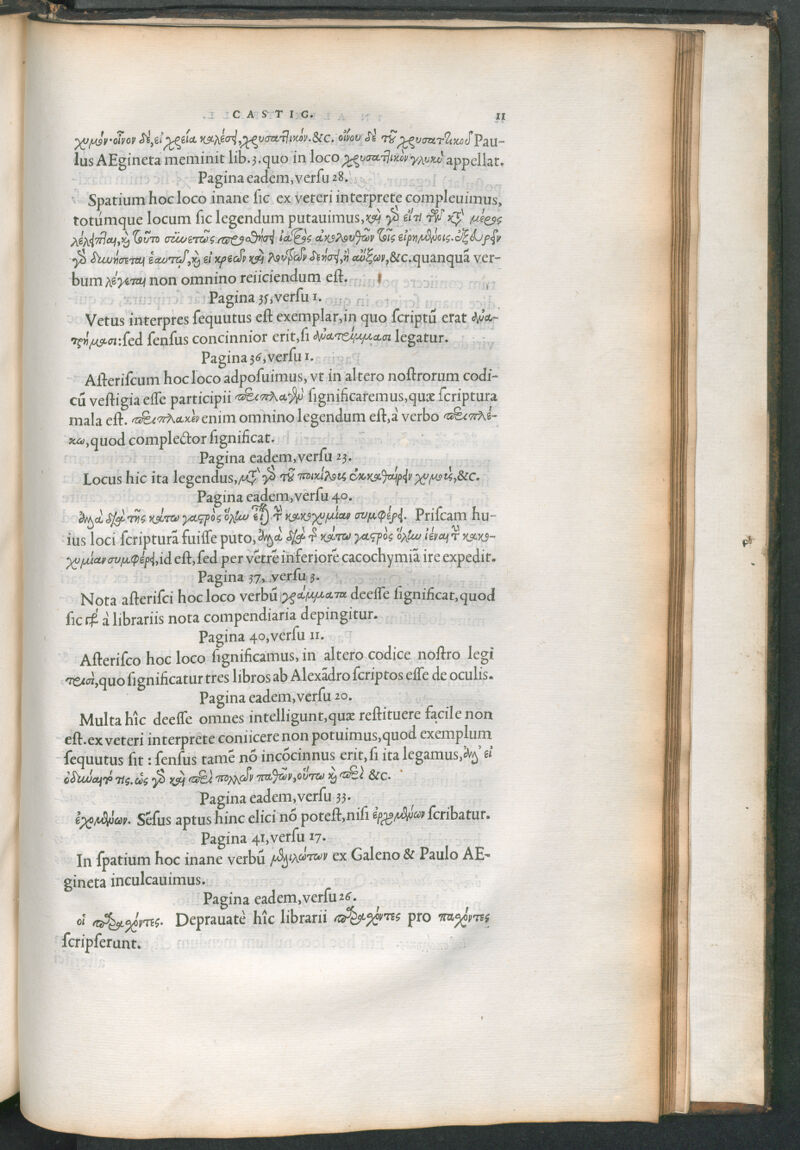 CASTIG. 11
χυμόν· οἶνον δὲ, εἰ χρεία καλέσῃ, χρυσατ]ικόν. &c. οἴνου δὲ τοῦ χρυσατ]ικοῦ Pau-
lus AEgineta meminit lib.3.quo in loco χρυσατ]ικὸν γλυκὺ appellat.
Pagina eadem, versu 28.
Spatium hoc loco inane sic ex veteri interprete compleuimus,
totúmque locum sic legendum putauimus, καὶ γὸ εἴ τι τῶν κτ̀ μέρος
λέλειπται, καὶ τοῦτο συνετῶς προσθήσει ἰατρὸς ἀκολουθῶν τοῖς εἰρημένοις. ἐξευρεῖν
γὸ δυνήσεται ἑαυτῷ, καὶ εἰ κρεῶν καὶ λουτρῶν δεήσει, ἢ αὔξων, &c. quanquã ver-
bum λέγεται non omnino reiiciendum est.
Pagina 35, versu 1.
Vetus interpres sequutus est exemplar, in quo scriptũ erat
: sed sensus concinnior erit, si legatur.
Pagina 36, versu 1.
Asteriscum hoc loco adposuimus, vt in altero nostrorum codi-
cũ vestigia esse participii significaremus, quæ scriptura
mala est. περιπλακὲν enim omnino legendum est, à verbo περιπλέ-
κω, quod complector significat.
Pagina eadem, versu 23.
Locus hic ita legendus, μτ̀ γὸ τοῦ ποικίλοις ἐκκαθαίρειν χυμοὺς, &c.
Pagina eadem, versu 40.
ἀλλὰ διὰ τῆς κάτω γαστρὸς ὅλων κακοχυμίαν συμφέρει. Priscam hu-
ius loci scripturã fuisse puto, ἀλλὰ διὰ τ̃ κάτω γαστρὸς ὅλων ἰέναι τ̀ κακο-
χυμίαν συμφέρει, id est, sed per vẽtrẽ inferiorẽ cacochymiã ire expedit.
Pagina 37, versu 3.
Nota asterisci hoc loco verbũ γράμματα deesse significat, quod
sic à librariis nota compendiaria depingitur.
Pagina 40, versu 11.
Asterisco hoc loco significamus, in altero codice nostro legi
τρισὶ, quo significatur tres libros ab Alexãdro scriptos esse de oculis.
Pagina eadem, versu 20.
Multa hîc deesse omnes intelligunt, quæ restituere facile non
est. ex veteri interprete coniicere non potuimus, quod exemplum
sequutus sit : sensus tamẽ nõ incõcinnus erit, si ita legamus, ἀλλ' εἰ
ὀδυνᾶταί τις. ὡς γὸ καὶ περὶ πολλῶν παθῶν, οὕτω καὶ περὶ &c.
Pagina eadem, versu 33.
ἐχομένων. Sẽsus aptus hinc elici nõ potest, nisi ἐρχομένων scribatur.
Pagina 41, versu 17.
In spatium hoc inane verbũ μελιλώτων ex Galeno & Paulo AE-
gineta inculcauimus.
Pagina eadem, versu 26.
οἱ παρασχόντες. Deprauatè hîc librarii παρασχόντες pro παχόντες
scripserunt.